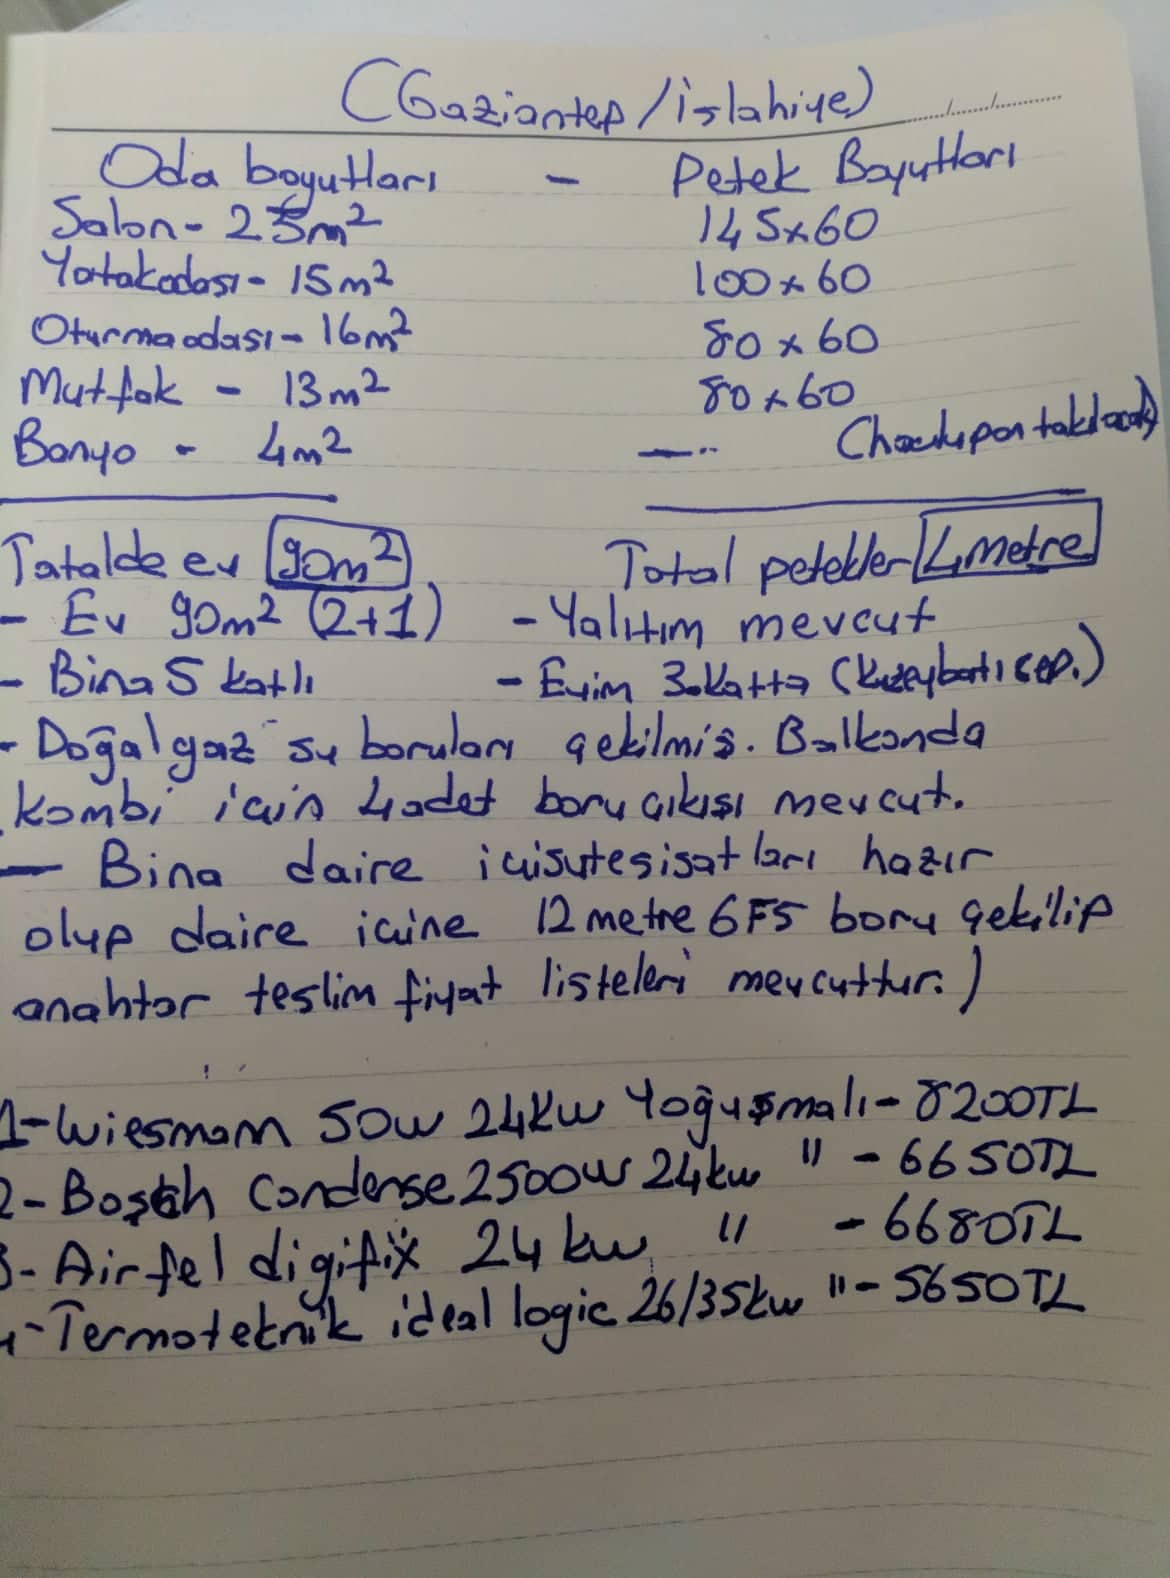 (Gaziantep/islahiye)
Oda boyutları - Petek Boyutları
Salon - 25m² 145x60
Yatakodası - 15m² 100x60
Oturma odası - 16m² 80x60
Mutfak - 13m² 80x60
Banyo - 4m² —..
Totalde ev 90m² Total petekler 4 metre
- Ev 90m² (2+1) - Yalıtım mevcut
- Bina 5 katlı - Evim 3.katta (kuzeybatı cep.)
- Doğalgaz su boruları çekilmiş. Balkonda
kombi için 4 adet boru çıkışı mevcut.
— Bina daire içi su tesisatları hazır
olup daire içine 12 metre GFS boru çekilip
anahtar teslim fiyat listeleri mevcuttur.)
1- Wiesmam 50w 24kw Yoğuşmalı - 8200TL
2- Bosch Condense 2500w 24kw " - 6650TL
3- Airfel digifix 24 kw " - 6680TL
4- Termoteknik ideal logic 26/35kw " - 5650TL